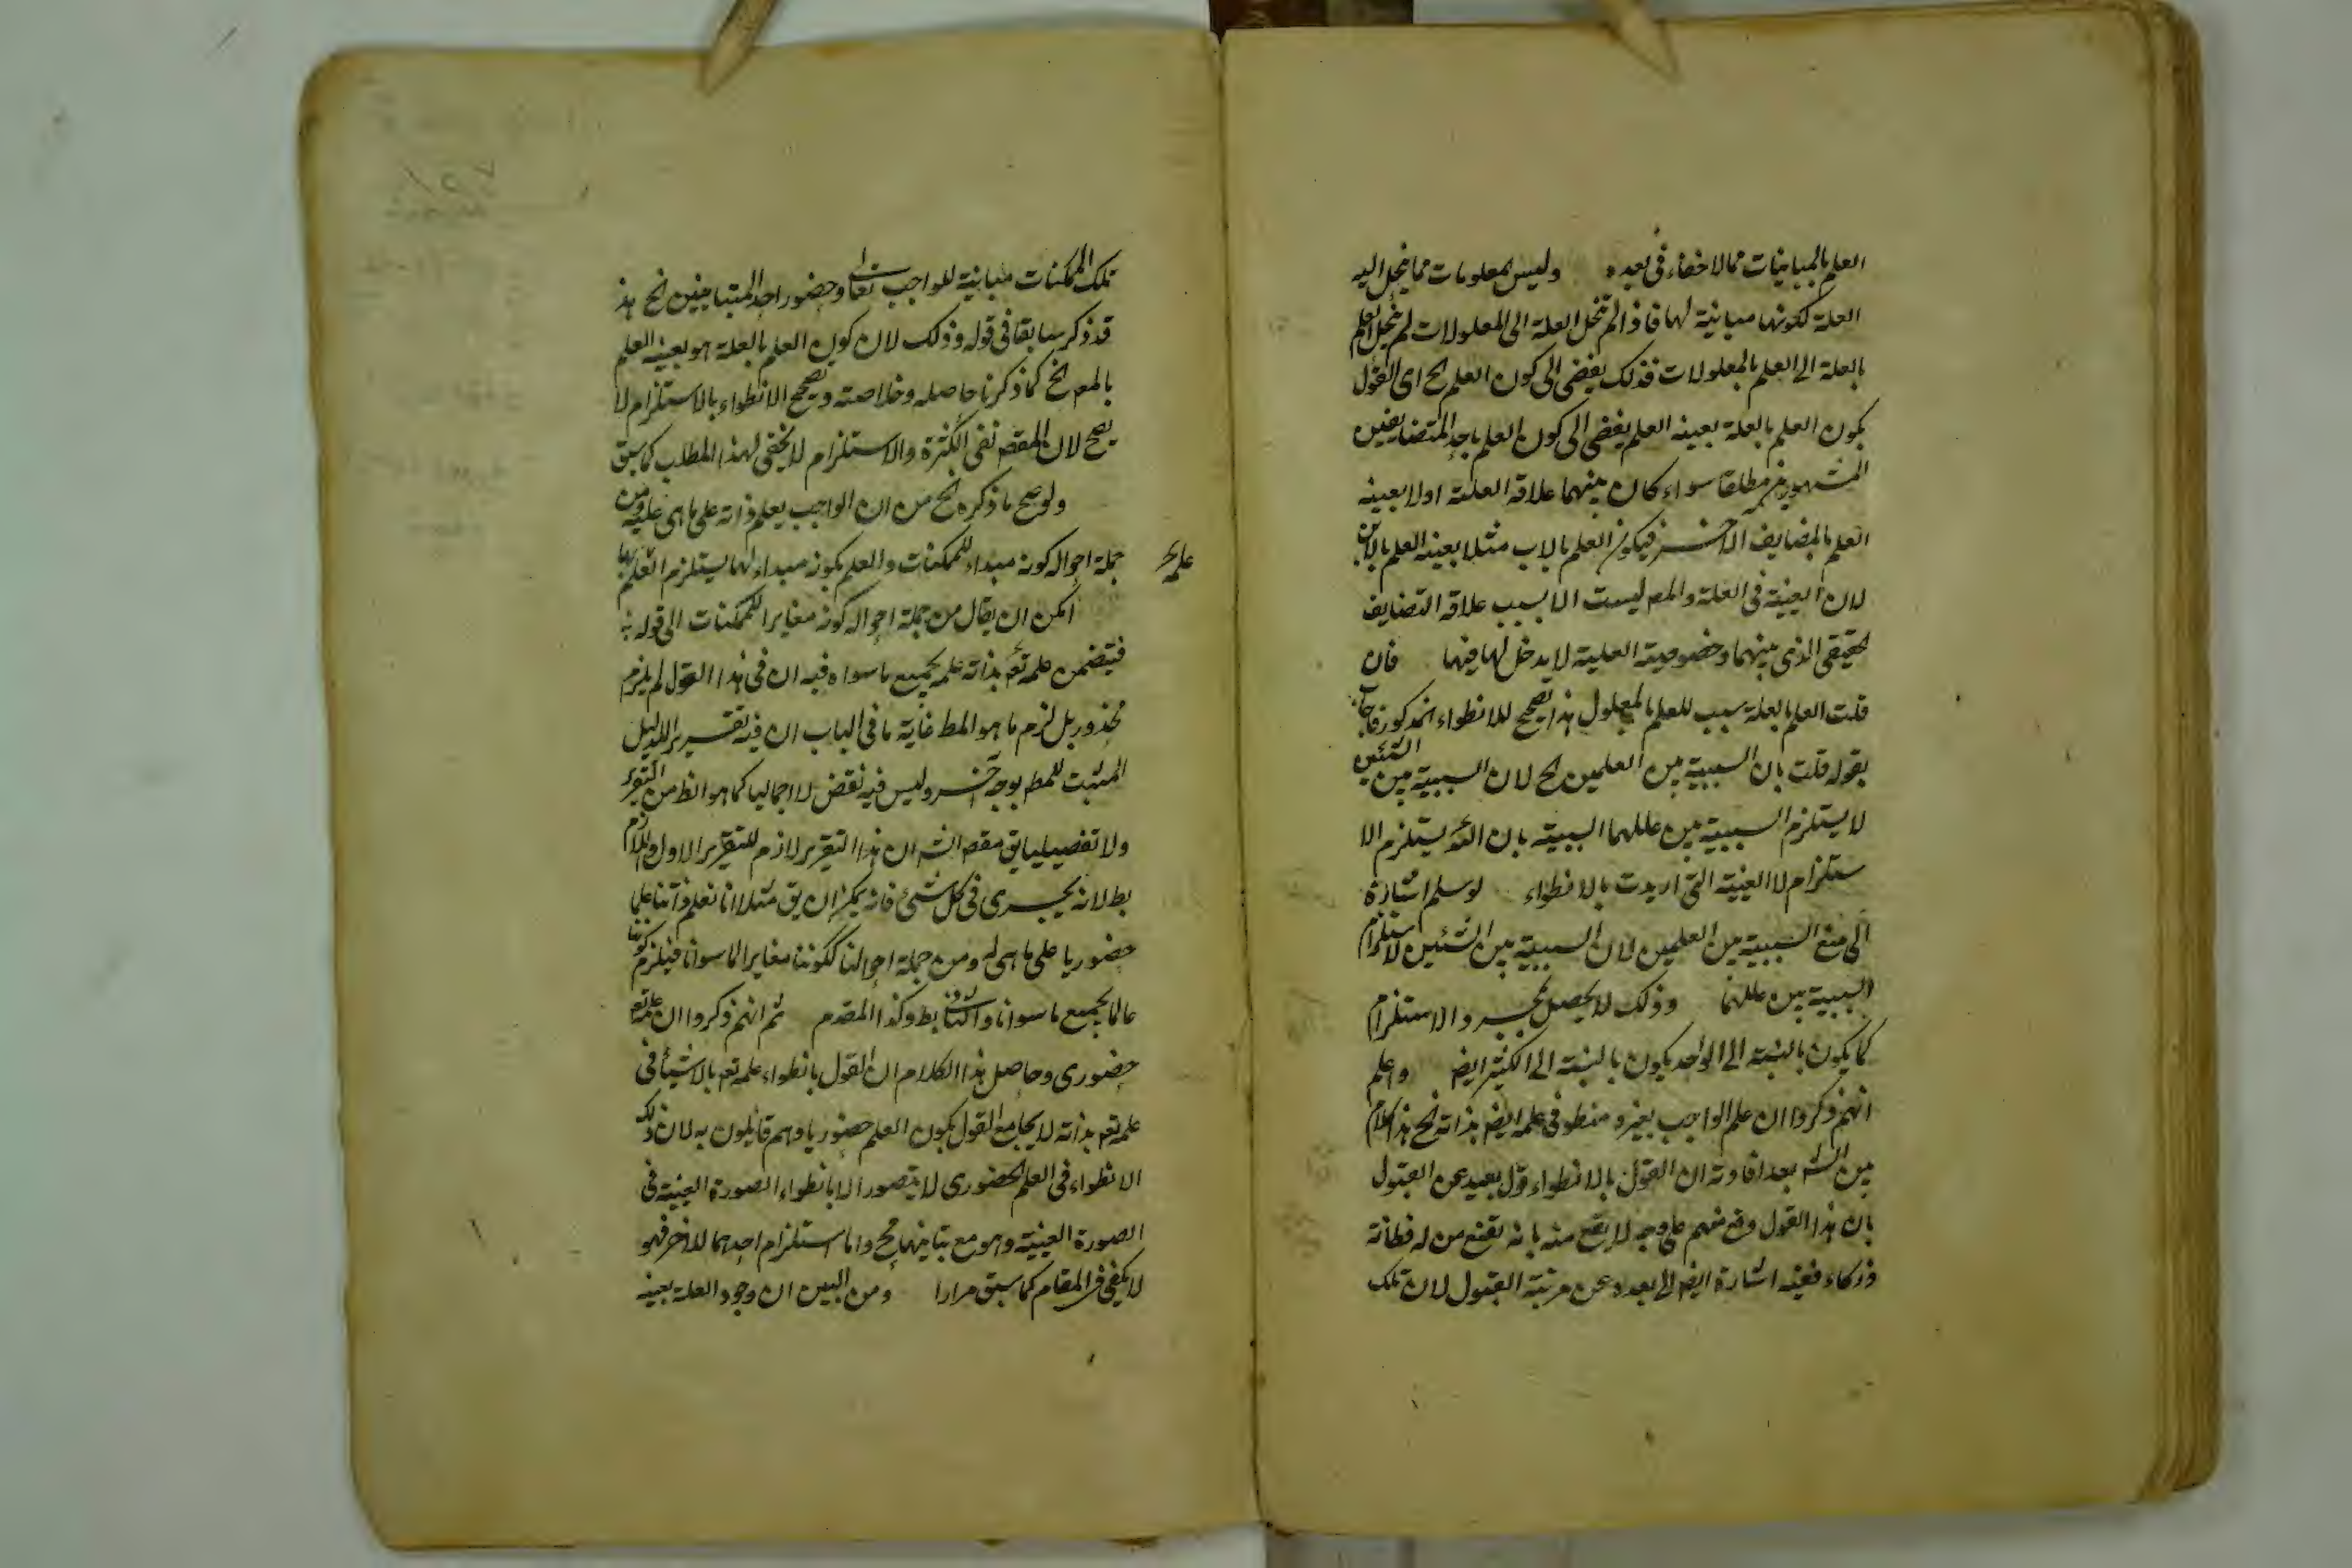 العلم بالمباينات مما لا خفاء فى بعده وليس المعلومات مما ينحل اليه
العلة لكونها مباينة لها فاذا لم تنحل العلة الى المعلولات لم ينحل العلم
بالعلة الى العلم بالمعلولات فذلك يفضى الى كون العلم الخ اى القول
بكون العلم بالعلة بعينه العلم يفضى الى كون العلم باحد المتضايفين
المشهورين مطلقا سواء كان بينهما علاقة العلية اولا بعينه
العلم بالمضايف الآخر فيكون العلم بالاب مثلا بعينه العلم بالابن
لان العينية فى العلة والمع ليست الا بسبب علاقة التضايف
الحقيقى الذى بينهما وخصوصية العلية لا يدخل لها فيها فان
قلت العلم بالعلة سبب للعلم بالمعلول هذا تصحيح للانطواء المذكور فاجاب
بقوله قلت بان السببية بين العلمين الخ لان السببية بين الشيئين
لا يستلزم السببية بين علمهما السببية بان يستلزم الا
ستلزام لا العينية التى اريدت بالانطواء لو سلم اشارة
الى منع السببية بين العلمين لان السببية بين الشيئين لا استلزام
السببية بين علمهما وذلك لا يحصل بمجرد الاستلزام
كما يكون بالنسبة الى الواحد يكون بالنسبة الى الكثير ايضا واعلم
انهم ذكروا ان علم الواجب بغيره منطو فى علمه ايضا بذاته الخ هذا كلام
من الش بعد افادته ان القول بالانطواء قول بعيد عن القبول
بان هذا القول وقع منهم على وجه لا يقع منه بانه يقنع من له فطانة
وذكاء ففيه اشارة ايضا الى بعده عن مرتبة القبول لان تلك
تلك الممكنات مباينة للواجب تعالى وحضور احد المتباينين الخ هذا
قد ذكر سابقا فى قوله وذلك لان كون العلم بالعلة هو بعينه العلم
بالمع الخ كما ذكرنا حاصله وخلاصته وتصحيح الانطواء بالاستلزام لا
يصح لان المقص نفى الكثرة والاستلزام لا يكفى لهذا المطلب كما سبق
ولو صح ما ذكره الخ من ان الواجب يعلم ذاته على ما هى عليه ومن
جملة احواله كونه مبداء للممكنات والعلم بكونه مبداء لها يستلزم العلم بها
امكن ان يقال من جملة احواله كونه مغايرا للممكنات الى قوله
فيتضمن علمه تع بذاته علمه بجميع ما سواه فيه ان فى هذا القول لم يلزم
محذور بل لزم ما هو المط غاية ما فى الباب ان فيه تقرير الدليل
المثبت للمط بوجه آخر وليس فيه نقض لا اجماليا كما هو الظ من التقرير
ولا تفصيليا يق مقص الش ان هذا التقرير لازم للتقرير الاول واللازم
بط لانه يجرى فى كل شئ فانه يمكن ان يق مثلا انا نعلم ذاتنا علما
حضوريا على ما هى له ومن جملة احوالنا ككوننا مغايرا لما سوانا فيلزم كوننا
عالما بجميع ما سوانا والتالى بط وكذا المقدم ثم انهم ذكروا ان علمه تع
حضورى وحاصل هذا الكلام ان القول بانطواء علمه تع بالاشياء فى
علمه تع بذاته لا يجامع القول بكون العلم حضوريا وهم قائلون به لان ذلك
الانطواء فى العلم الحضورى لا يتصور الا بانطواء الصورة العينية فى
الصورة العينية وهو مع تباينهما مح واما استلزام احدهما للآخر فهو
لا يكفى فى المقام كما سبق مرارا ومن البين ان وجود العلة بعينه